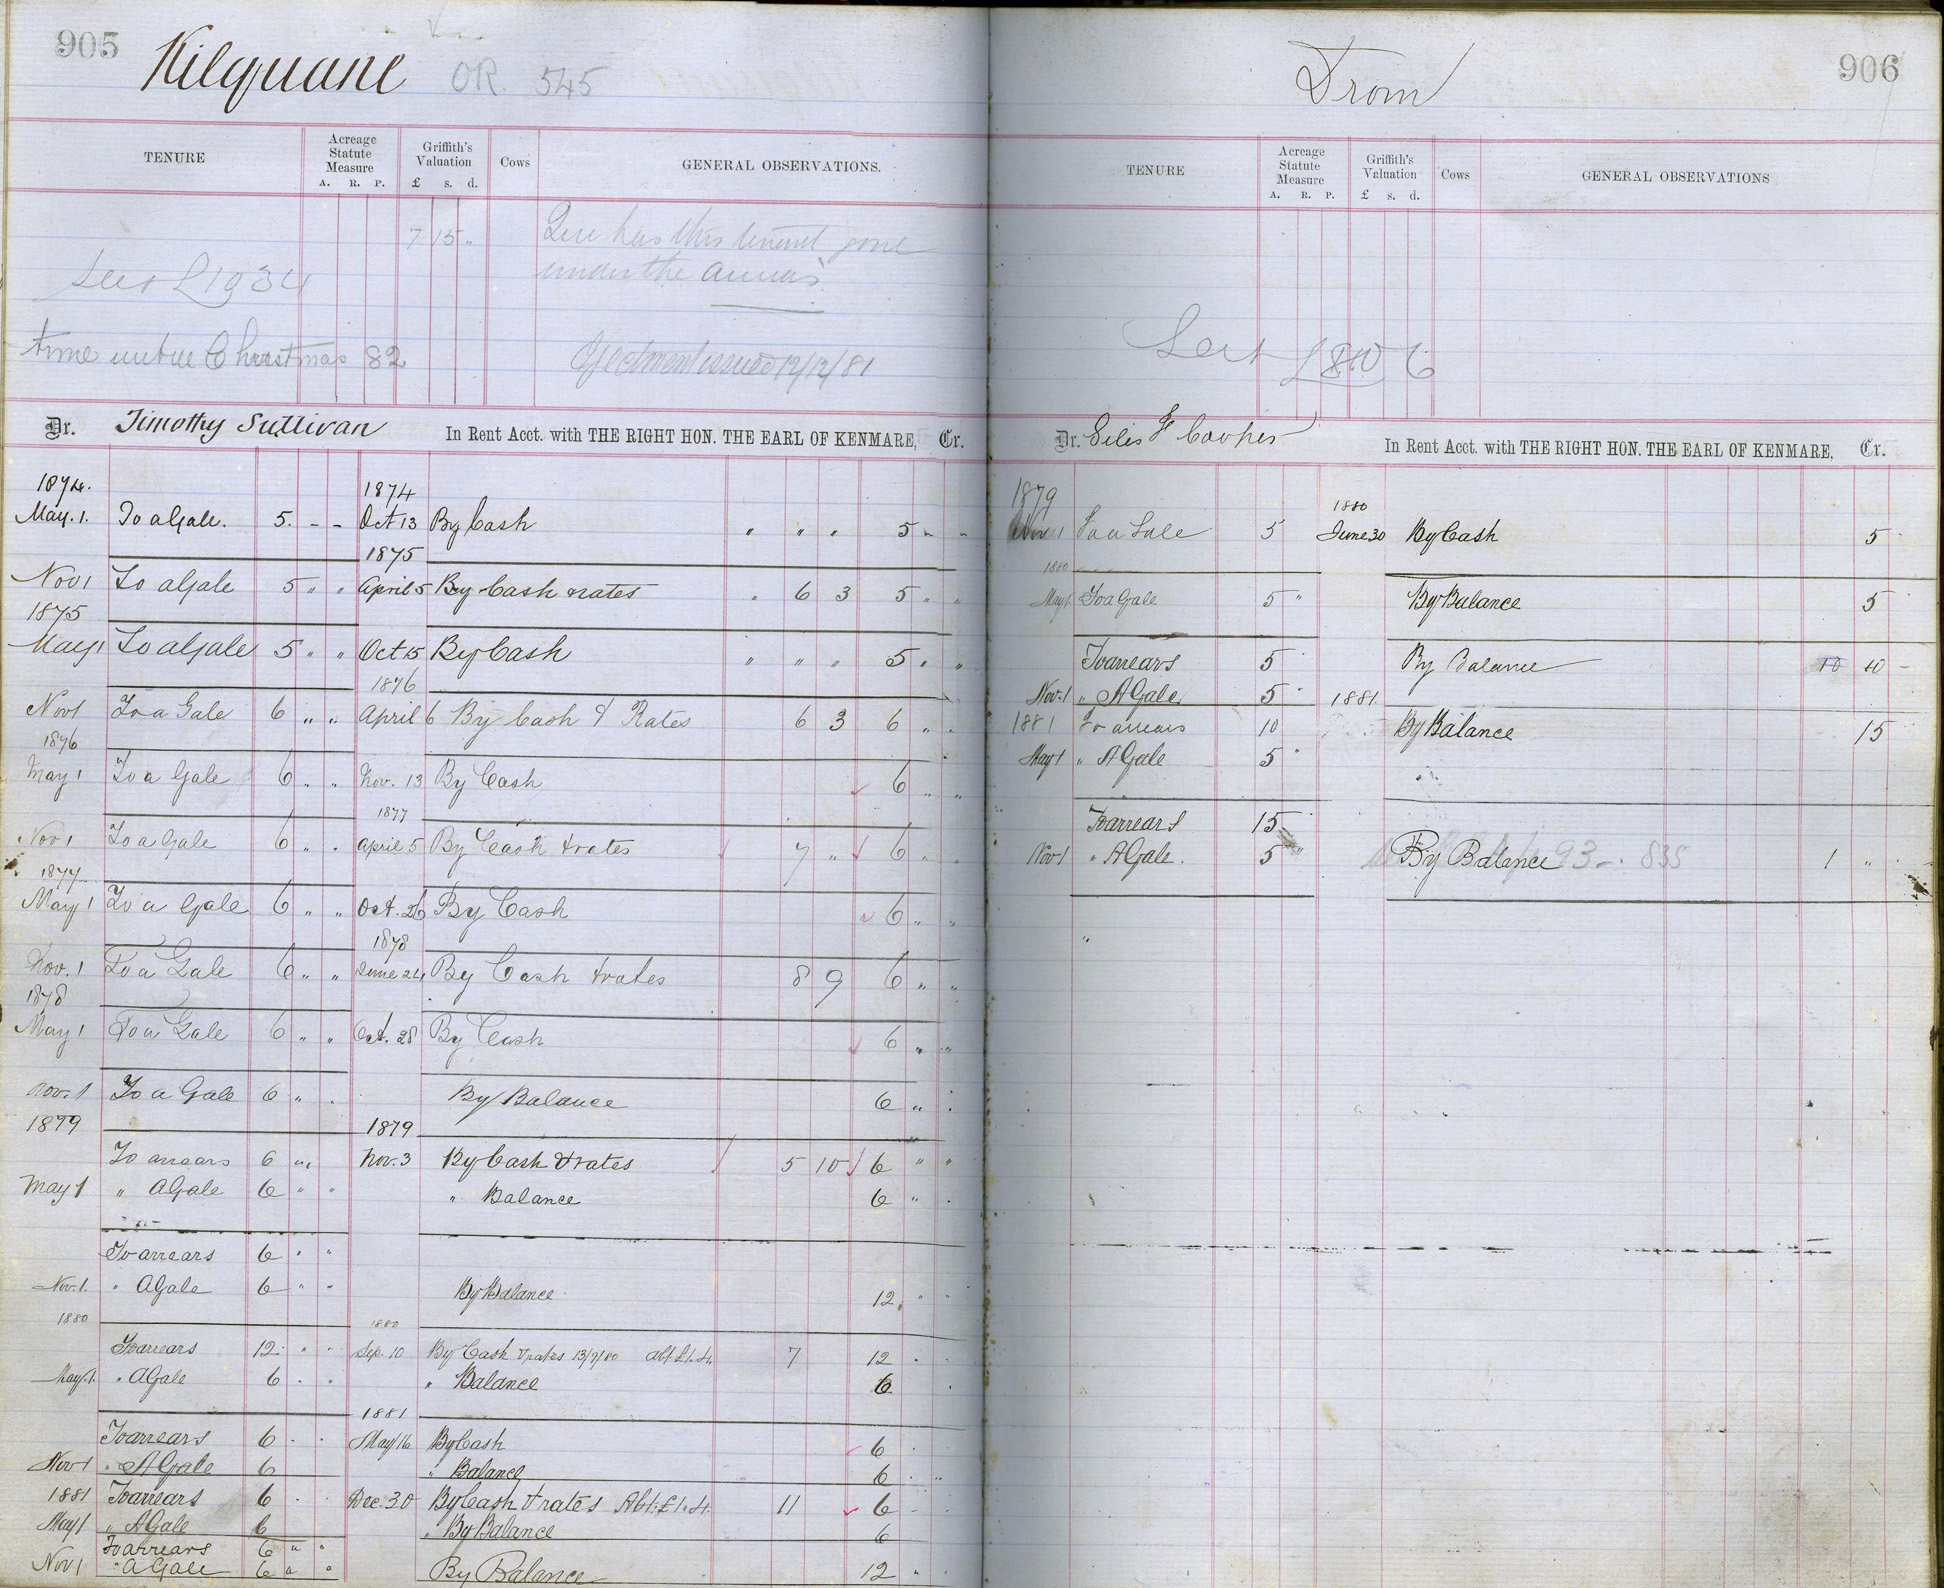 905
Kilquane OR. 545
TENURE Acreage Statute Measure A. R. P. Griffith's Valuation £ s. d. Cows GENERAL OBSERVATIONS.
7 15 "
has this tenant gone
under the
time Christmas 82
Ejectment issued 12/12/81
Dr. Timothy Sullivan In Rent Acct. with THE RIGHT HON. THE EARL OF KENMARE, Cr.
1874. 1874
May. 1. To a Gale. 5. - - Oct 13 By Cash " " " 5 " "
1875
Nov 1 To a Gale 5 " " April 5 By Cash rates " 6 3 5 " "
1875
May 1 To a Gale 5 " " Oct 15 By Cash " " " 5 " "
1876
Nov 1 To a Gale 6 " " April 6 By Cash & Rates 6 3 6 " "
1876
May 1 To a Gale 6 " " Nov. 13 By Cash 6 " "
1877
Nov 1 To a Gale 6 " " April 5 By Cash & rates 7 " 6 " "
1877
May 1 To a Gale 6 " " Oct. 26 By Cash 6 " "
1878
Nov. 1 To a Gale 6 " " June 24 By Cash & rates 8 9 6 " "
1878
May 1 To a Gale 6 " " Oct. 28 By Cash 6 " "
Nov. 1 To a Gale 6 " . By Balance 6 " .
1879 1879
To arrears 6 " " Nov. 3 By Cash & rates 5 10 6 " "
May 1 " A Gale 6 " " " Balance 6 " .
To arrears 6 " "
Nov. 1. " A Gale 6 " " By Balance 12 " "
1880 1880
To arrears 12 " " Sep. 10 By Cash & rates 13/9/80 abt £1.4. 7 12 . .
May 1. " A Gale 6 . . " Balance 6 .
1881
To arrears 6 . . May 16 By Cash 6 .
Nov 1 " A Gale 6 " Balance 6 . "
1881 To arrears 6 . . Dec. 30 By Cash & rates Abt. £1.4. 11 6 -
May 1 " A Gale 6 " By Balance 6
To arrears 6 " "
Nov 1 " A Gale 6 " " By Balance 12 "
906
Drom
TENURE Acreage Statute Measure A. R. P. Griffith's Valuation £ s. d. Cows GENERAL OBSERVATIONS
Dr. Giles F Cooper In Rent Acct. with THE RIGHT HON. THE EARL OF KENMARE, Cr.
1879 1880
Nov 1 To a Gale 5 June 30 By Cash 5
1880
May 1 To a Gale 5 " By Balance 5
To arrears 5 By Balance 10 10 -
Nov. 1 " A Gale 5 " 1881.
1881 To arrears 10 By Balance 15
May 1 " A Gale 5 "
To arrears 15
Nov 1 " A Gale. 5 " By Balance 1 " .
"